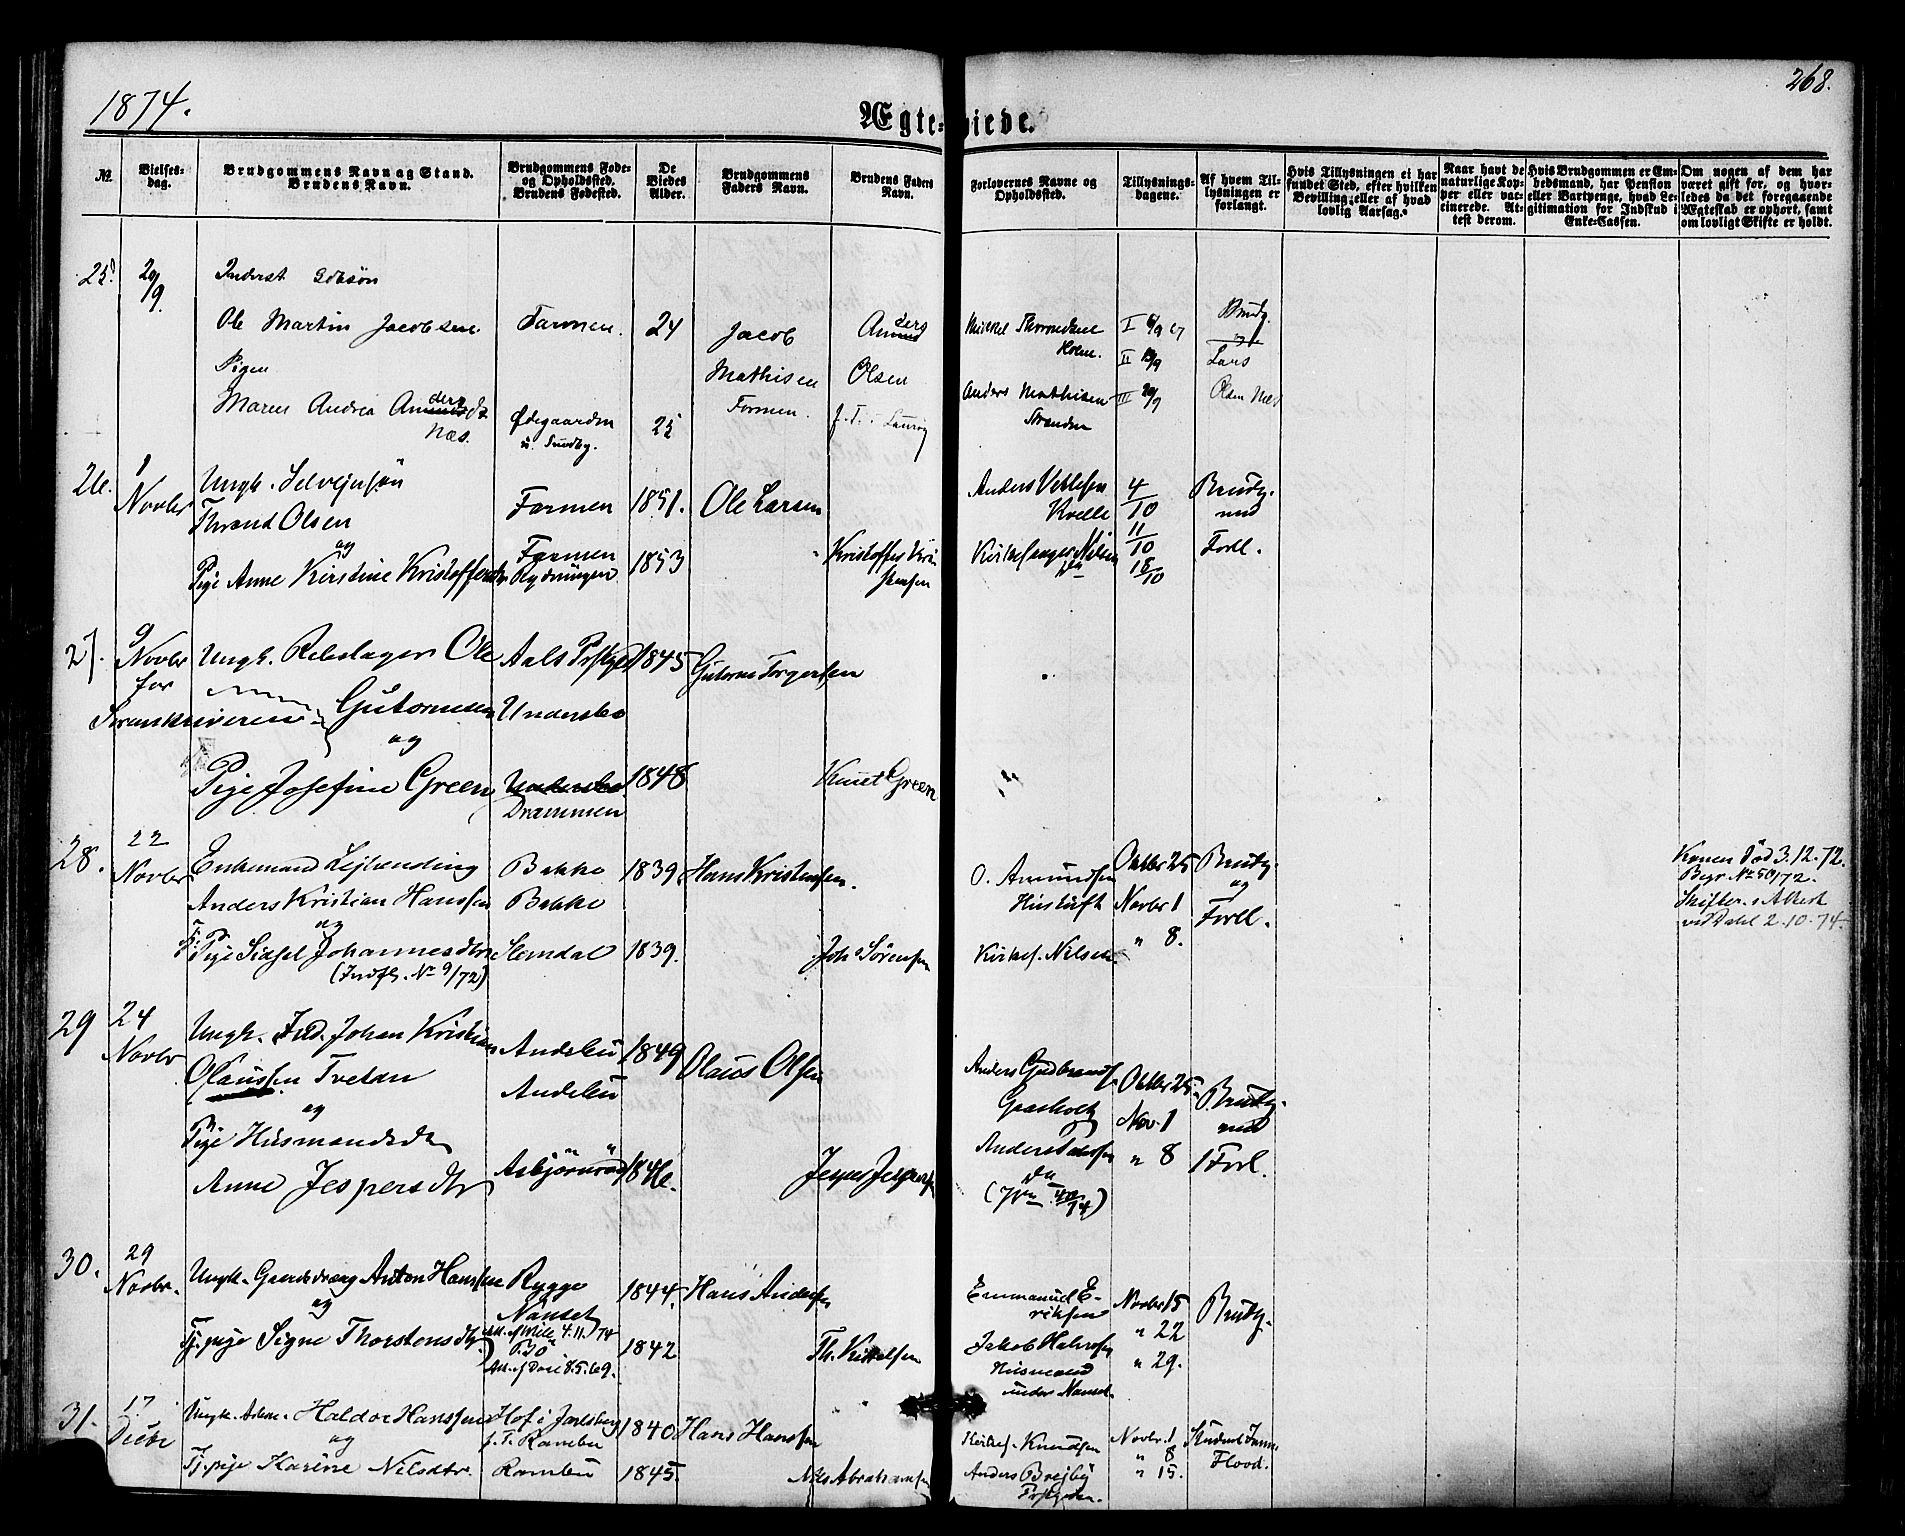 1874.
268.
Ægteviede.
No.
Vielses-
dag.
Brudgommens Navn og Stand.
Brudens Navn.
Brudgommens Føde-
og Opholdssted.
Brudens Fødested.
De
Viedes
Alder.
Brudgommens
Faders Navn.
Brudens Faders
Navn.
Forlovernes Navne og
Opholdssted.
Tillysnings-
dagene.
Af hvem Til-
lysningen er
forlangt.
Hvis Tillysningen ei har
fundet Sted, efter hvilken
Bevilling, eller af hvad
lovlig Aarsag.
Naar havt de
naturlige Kop-
per eller vac-
cinerede. At-
test derom.
Hvis Brudgommen er Em-
bedsmand, har Pension
eller Vartpenge, hvad Le-
gitimation for Indskud i
Enke-Cassen.
Om nogen af dem har
været gift før, og hvor-
ledes da det foregaaende
Ægteskab er ophørt, samt
om lovligt Skifte er holdt.
25.
29/9
Inderst
Ole Martin Jacobsen
Pigen
Maren Andrea
Næs.
Farmen.
Ødegaarden
u. Sundby.
24
25
Jacob
Mathisen
Farmen.
Anders
Olsen
Mikkel
Holm.
Anders Mathisen
Stranden
I 6/9
II 13/9
III 20/9
Brudg.
og
Lars
Olsen Næs
26.
1
Novbr
Ungk. Selvejersøn
Thrond Olsen
og
Pige Anne Kirstine
Farmen
Farmen
Rydningen
1851.
1853
Ole Larsen
Kristoffer
Anders
Kvelle
Kirkesanger Nilsen
4/10
11/10
18/10
Brudg.
med
Forl.
27.
9
Novbr
for
Ungk. Rebslager Ole
Gutormsen
og
Pige Josefine Green
Aals
Drammen
1845
1848
Gutorm Torgersen
Knut Green
28.
22
Novbr
Enkemand Lejlending
Anders Kristian Hanssen
og
Pige Sidsel Johannesdtr
(Indfl. No 9/72)
Bakke
Bakke
Hemdal
1839
1839.
Hans Kristensen.
Joh. Sørensen
O. Amundsen
Kirkes. Nilsen
Oktbr 25
Novbr 1
" 8.
Brudg.
og
Forl.
Konen død 3.12.72.
Begr No 50/72.
Skifte
2.10.74.
29
24
Novbr
Ungk. Fred. Johan Kristian
Olaussen Tvetan
og
Pige Husmandsdtr
Anne Jespersdtr
Andebu
Andebu
Asbjørnrød
1849
1846.
Olaus Olsen
Jesper Jespersen
Anders Gudbrandsen
Anders
Oktbr 25
Nov. 1
" 8
Brudg.
med
1 Forl.
30.
29
Novbr.
Ungk. Gaardsdreng Anton Hanssen
og
Tj. pige Signe Thorstensdtr.
Rygge
Nanset
4.11.74
8.5.69.
1844.
1842
Hans Andersen
Th. Kittelsen
Emmanuel E-
riksen
Jakob Halvorsen
Husmand
under Nanset.
Novbr 15
" 22
" 29.
Brudg.
31.
17
Decbr
Ungk. Haldor Hanssen
og
Tj. pige Karine Nilsdtr.
Hof i Jarlsberg
f. T. Rambu
Rambu
1840
1845.
Hans Hanssen
Nils Abrahamsen
Kirkes. Knudsen
Anders Brejby
Novbr. 1
" 8
" 15.
Student
Flood.